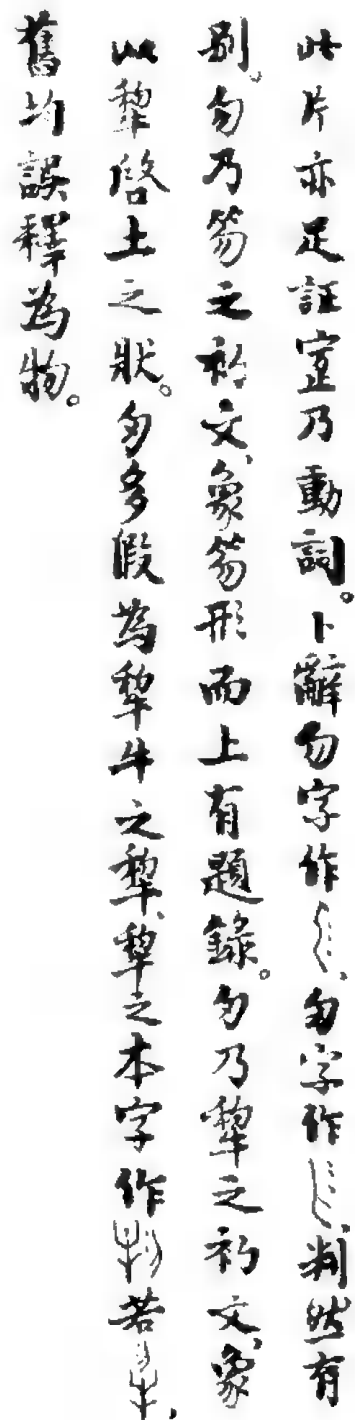 此片亦足証乃動詞。卜辭勿字作、字作、判然有
別。勿乃笏之初文、象笏形而上有題錄。乃犂之初文、象
以犂啓土之狀。多假為犂牛之犂、犂之本字作若、
舊均誤釋為物。